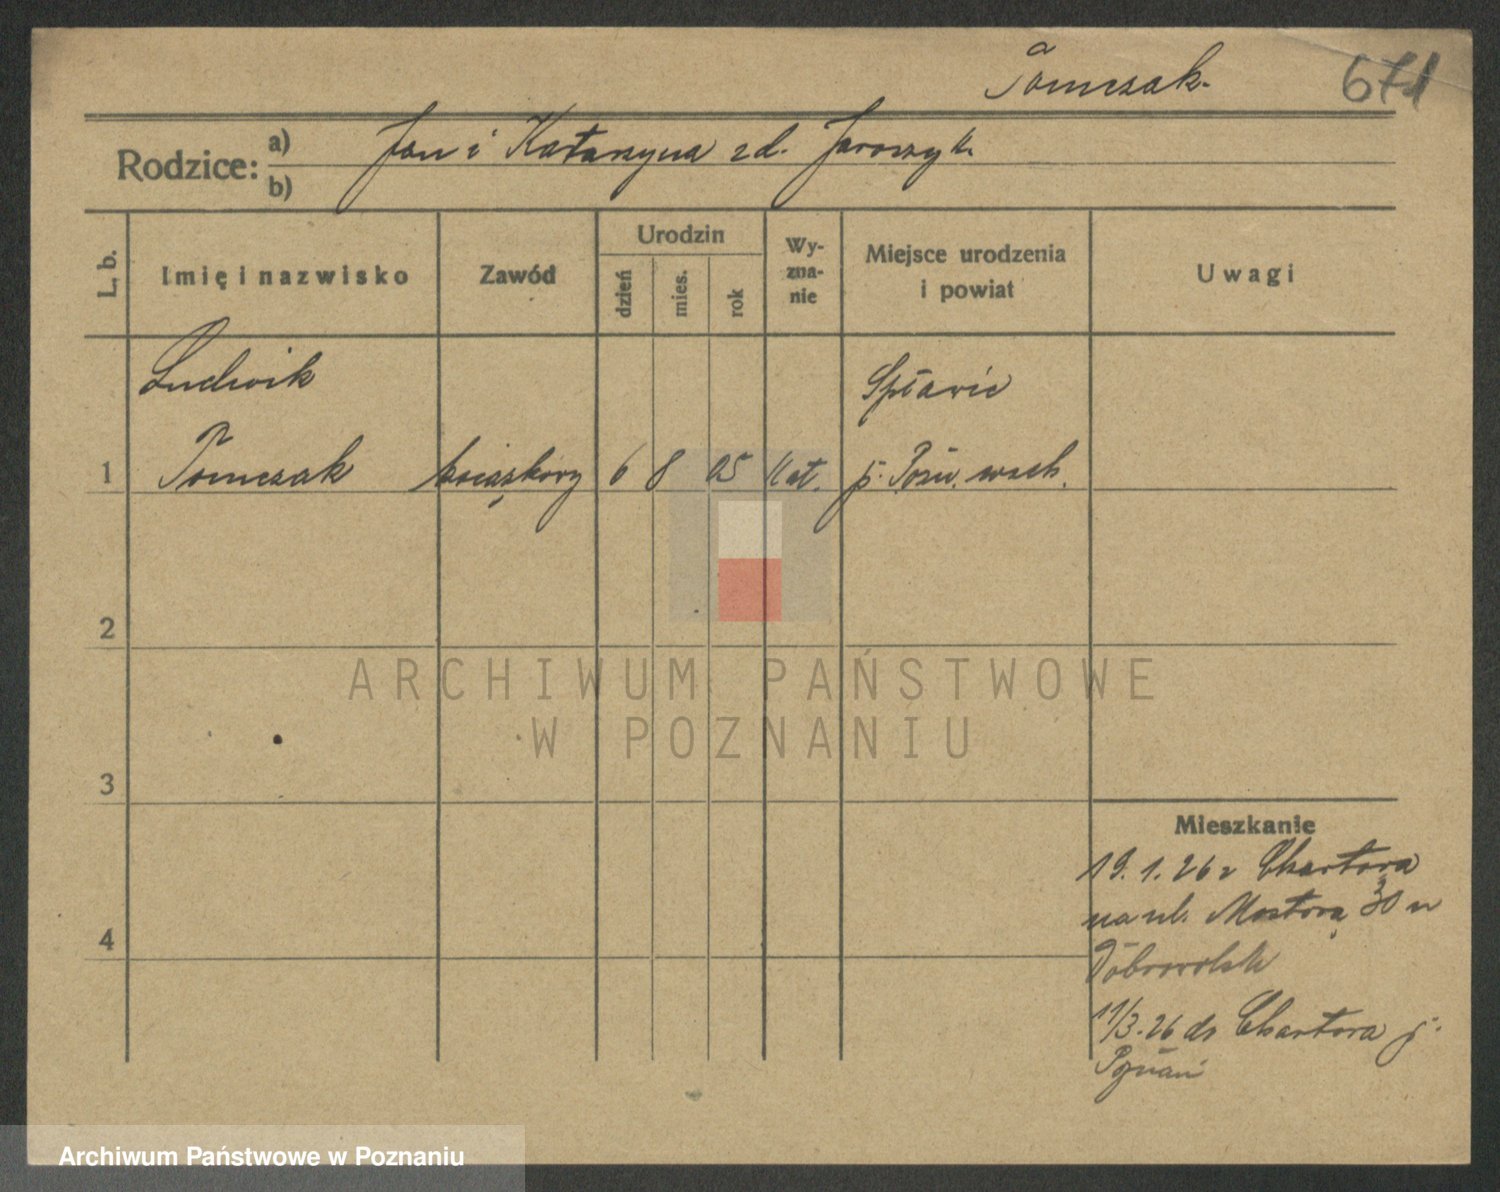 Tomczak.
671
Rodzice:
a) Jan i Katarzyna zd. Jaroszyk
b)
L. b.
Imię i nazwisko
Zawód
Urodzin
dzień
mies.
rok
Wy-
zna-
nie
Miejsce urodzenia
i powiat
Uwagi
Ludwik
Spławie
1 Tomczak 6 8 05 Kat. p. Pozn. wsch.
2
3
4
Mieszkanie
19.1.26 z Chartowa
na ul. Mostową 30 u
11/3.26 do Chartowa p.
Poznań
ARCHIWUM PAŃSTWOWE
W POZNANIU
Archiwum Państwowe w Poznaniu